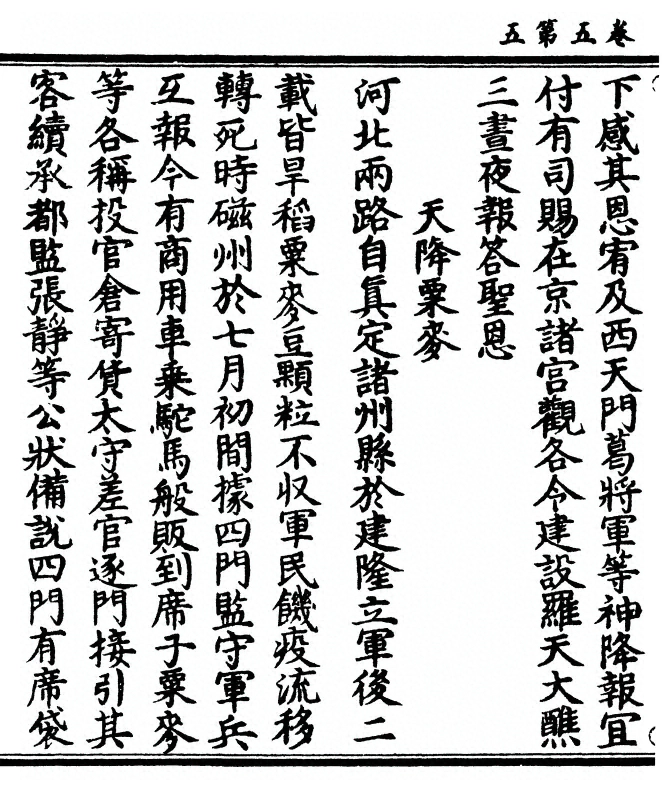 卷五第五
下感其恩宥及西天門葛將軍等神降報宜
付有司賜在京諸宮觀各令建設羅天大醮
三晝夜報答聖恩
天降粟麥
河北兩路自眞定諸州縣於建隆立軍後二
載皆旱稻粟麥豆顆粒不収軍民饑疫流移
轉死時磁州於七月初間據四門監守軍兵
互報今有商用車乗駝馬般販到席子粟麥
等各稱投官倉寄貸太守差官逐門接引其
客續承都監張靜等公狀備說四門有席袋